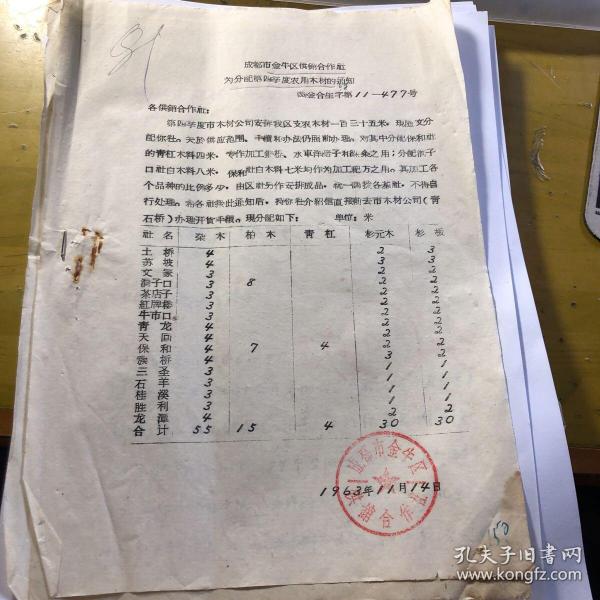 成都市金牛区供銷合作社
为分配第四季度农用木材的通知
金合生字第11—477号
各供銷合作社：
第四季度市木材公司安排我区支农木材一百三十五米，現随文分
配你社。关於供应范围、手續和办法仍照前办理。对其中分配保和社
的青杠木料四米，专作加工
口社白木料八米，保和社白木料七米均作为加工犯万之用。其加工各
个品种的比例多少，由区社另作安排成品，統一調拨各基社，不得自
行处理。希各社接此通知后，持你社介紹信直接前去市木材公司（青
石桥）办理开貨手續。現分配如下： 单位：米
社名 杂木 柏木 青杠 杉元木 杉板
土桥 4 2 3
苏坡 4 3 3
文家 3 2 2
洞子口 3 8 2 2
茶店子 3 2 2
紅牌楼 3 2 2
牛市口 3 2 2
青龙 4 2 2
天回 4 2 2
保和 4 7 4 2 2
桥 4 3 2
三圣 3 1 1
石羊 3 1 1
桂溪 3 1 1
胜利 3 1 1
龙潭 4 2 2
合計 55 15 4 30 30
成都市金牛区供銷合作社
1963年11月14日
50
孔夫子旧书网
www.kongfz.com